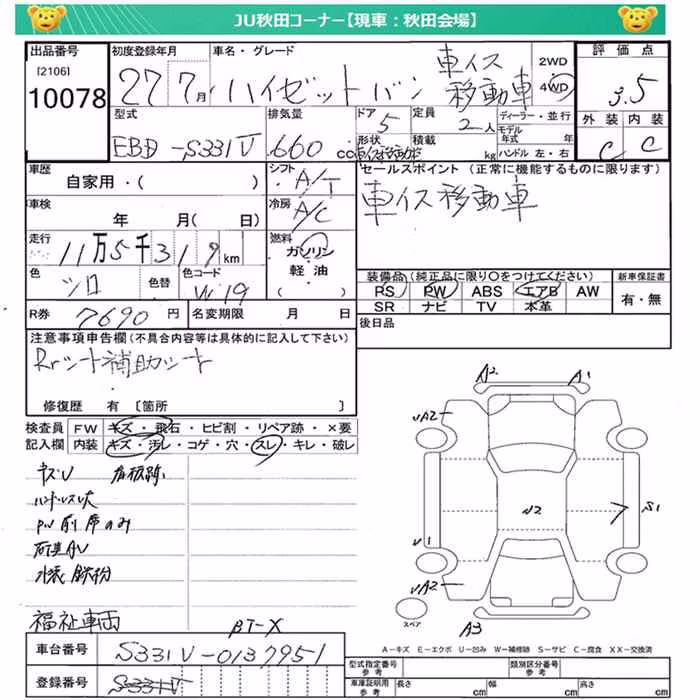 JU秋田コーナー【現車：秋田会場】
出品番号 初度登録年月 車名・グレード 評価点
[2106] 10078
27 7月 ハイゼットバン 車イス移動車 2WD 4WD 3.5
型式 排気量 ドア 定員 ディーラー・並行 外装 内装
EBD-S331V 660 cc 5 2人 C C
形状 積載 kg モデル年式 年 ハンドル 左・右
車歴 シフト セールスポイント (正常に機能するものに限ります)
自家用・( ) A/T 車イス移動車
車検 年 月(日) 冷房 A/C
走行 11万5千319km 燃料 ガソリン 軽油 ( )
色 シロ 色替 色コード W19
装備品(純正品に限り○をつけてください) 新車保証書
PS PW ABS エアB AW 有・無
SR ナビ TV 本革
R券 7690円 名変期限 月 日 後日品
注意事項申告欄(不具合内容等は具体的に記入して下さい)
Rrシート補助シート
修復歴 有 〔箇所 〕
検査員 FW キズ・飛石・ヒビ割・リペア跡・×要
記入欄 内装 キズ・汚レ・コゲ・穴・スレ・キレ・破レ
キズU 看板跡
ハンドルスレ大
PW前席のみ
荷室AU
外装鉄粉
福祉車両 βT-X
A2 A1
UA2
N2 S1
U1
UA2
スペア A3
A－キズ E－エクボ U－凹み W－補修跡 S－サビ C－腐食 XX－交換済
車台番号 S331V-0137951
登録番号 S331V
型式指定番号 参考 類別区分番号 参考
車庫証明用 参考 長さ cm 幅 cm 高さ cm